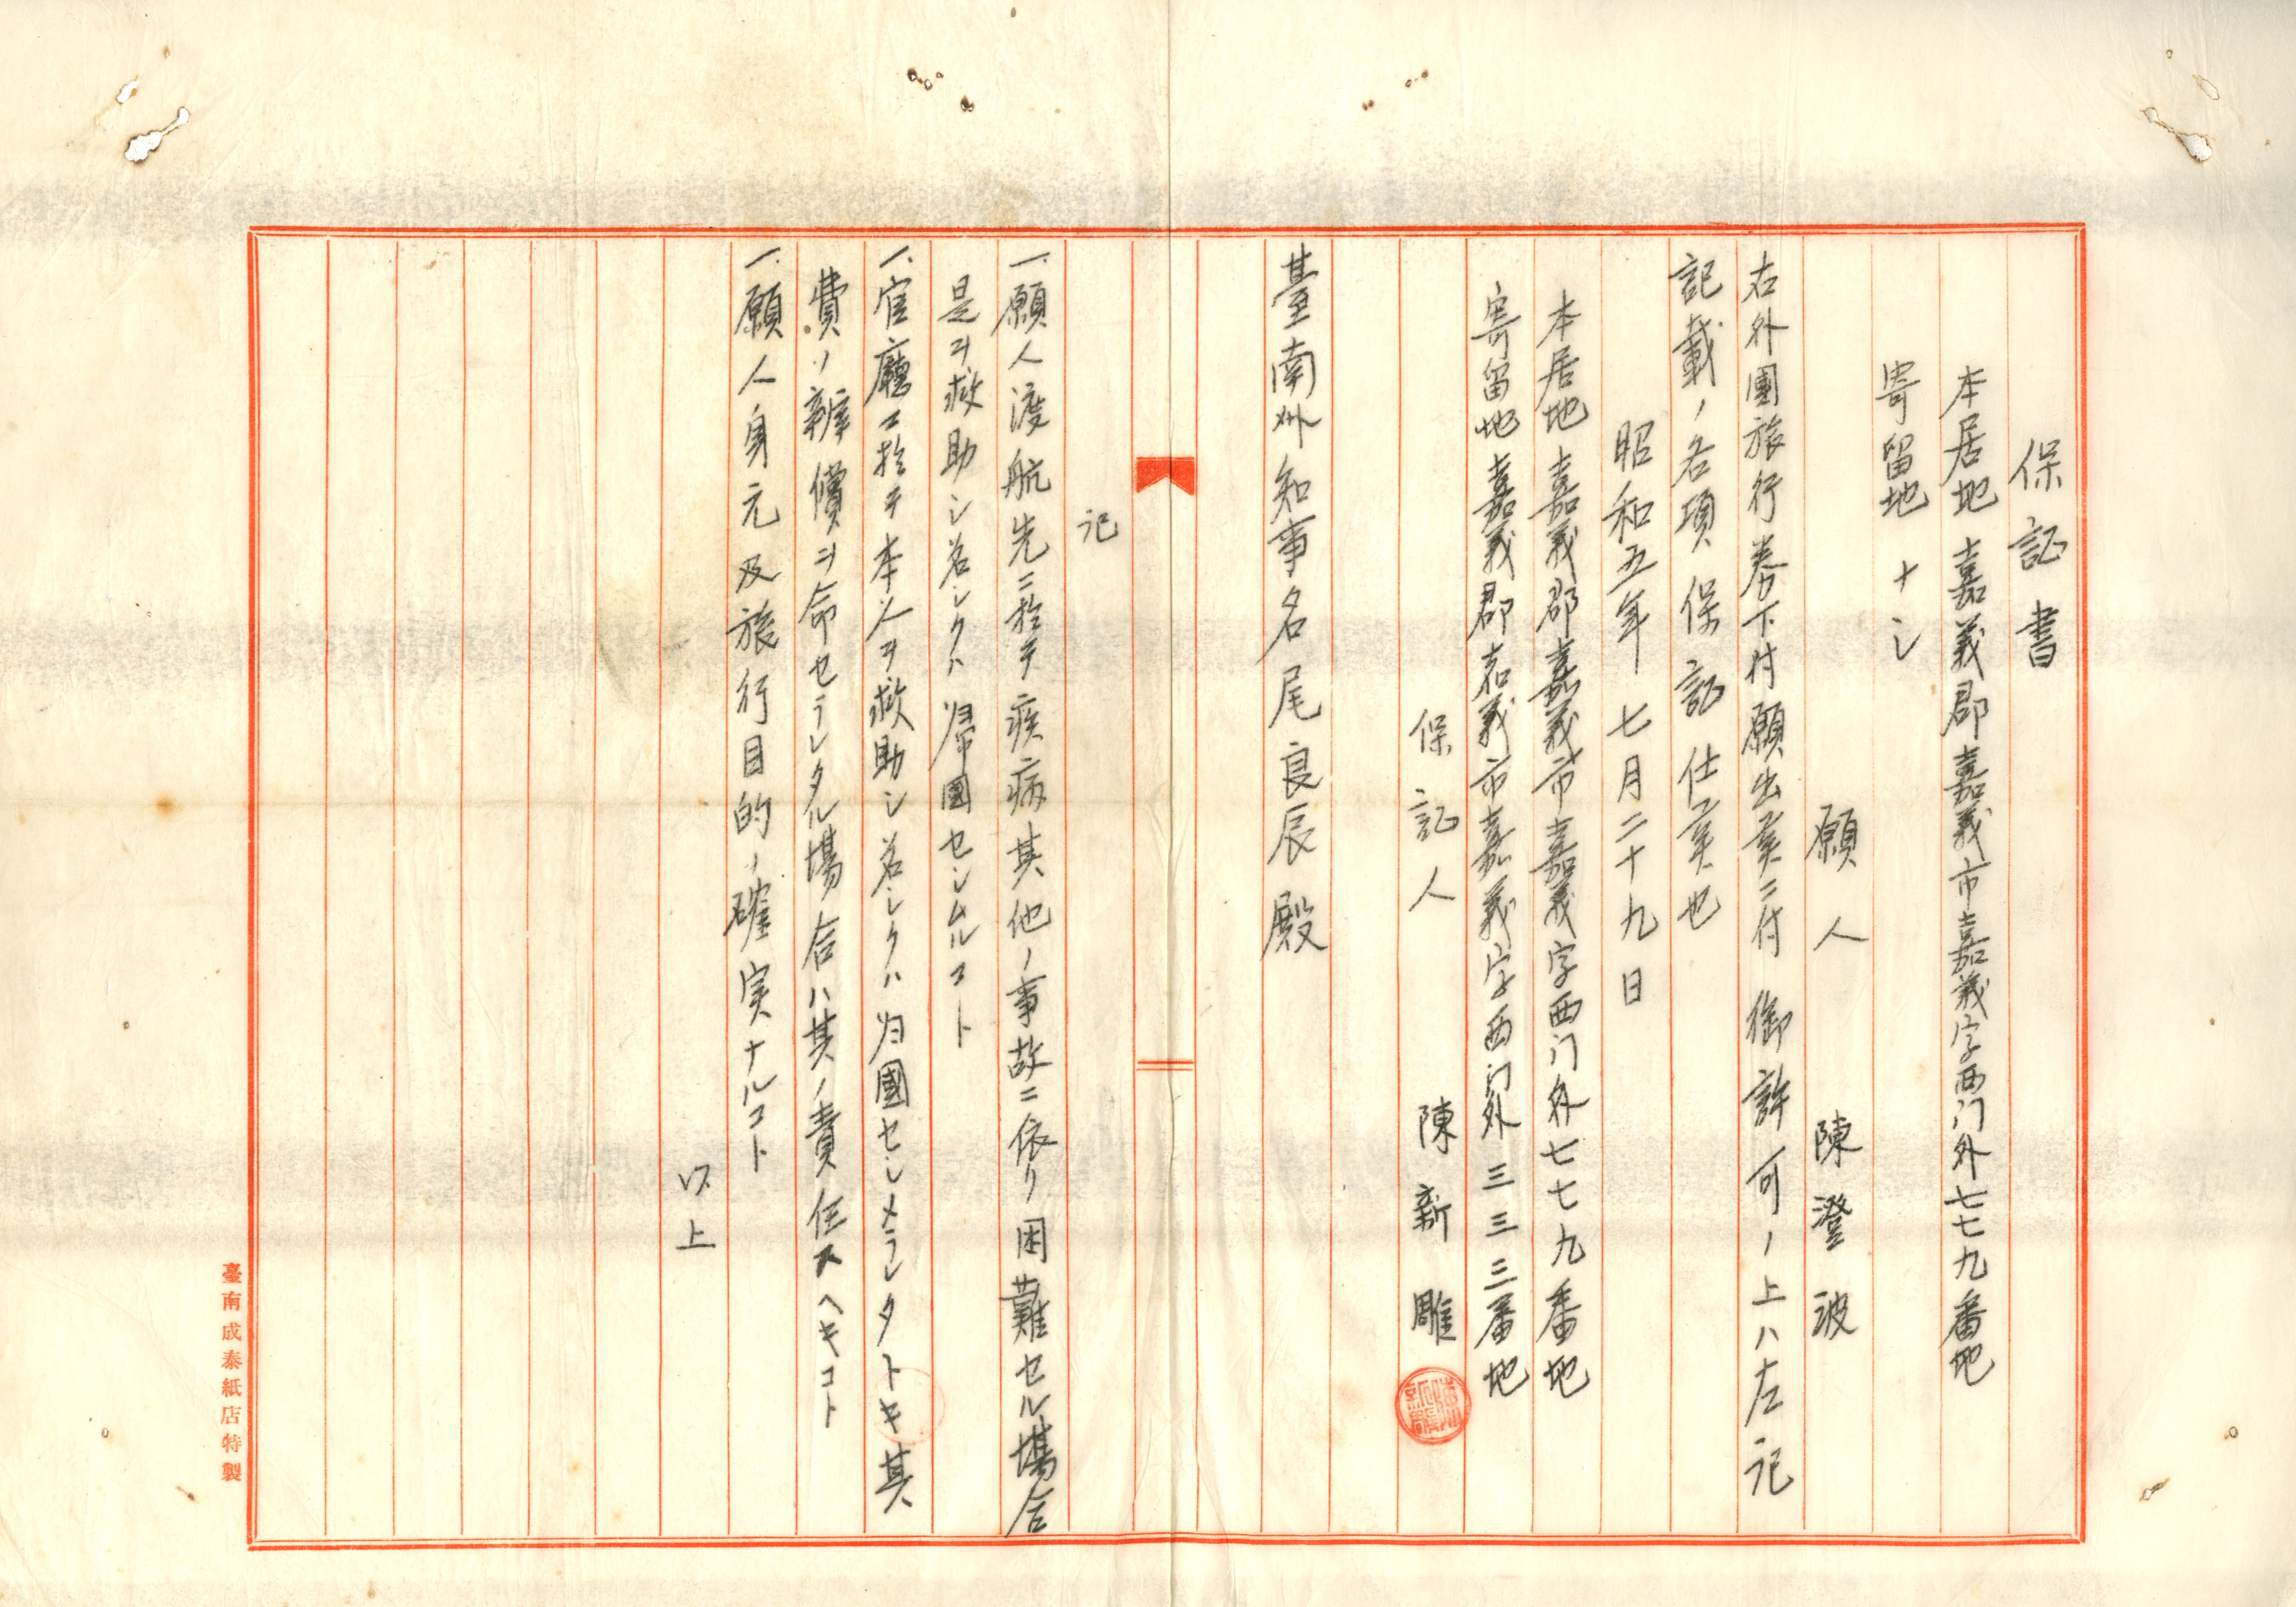 保証書
本居地 嘉義郡嘉義市嘉義字西门外七七九番地
寄留地 ナシ
願人 陳澄波
右外國旅行券下付願出候ニ付 御許可ノ上ハ左記
記載ノ各項保証仕候也
昭和五年七月二十九日
本居地 嘉義郡嘉義市嘉義字西门外七七九番地
寄留地 嘉義郡嘉義市嘉義字西门外三三三番地
保証人 陳新雕
臺南州知事名尾良辰殿
記
一.願人渡航先ニ於テ疾病其他ノ事故ニ依リ困難セル場合
是ヲ救助シ若シクハ帰國セシムルコト
一.官廳ニ於テ本人ヲ救助シ若シクハ归國セシメラレタトキ其
費ノ辨償ヲ命セラレタル場合ハ其ノ責任スヘキコト
一.願人身元及旅行目的ノ確実ナルコト
以上
臺南成泰紙店特製